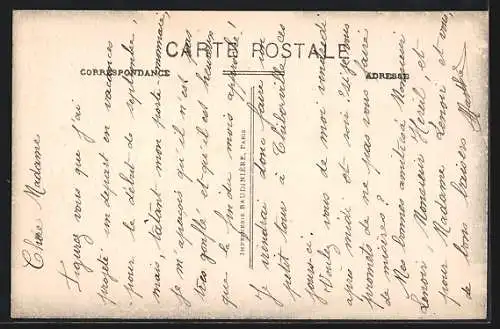 CARTE POSTALE
CORRESPONDANCE
ADRESSE
IMPRIMERIE BAUDINIÈRE, PARIS
Chère Madame
Figurez vous que j'ai
projeté un départ en vacances
pour le début de septembre,
mais, tâtant mon porte-monnaie,
je m'aperçois qu'il n'est pas
très gonflé et qu'il est heureux
que la fin du mois approche!
Je viendrai donc faire un
petit tour à Thiberville ces
jours-ci.
Voulez vous de moi vendredi
après midi et soir si je vous
promets de ne pas vous faire
de misères?
Mes bonnes amitiés à Monsieur
Lenoir, Monsieur Heuil, et
pour Madame Lenoir et vous,
de bons baisers